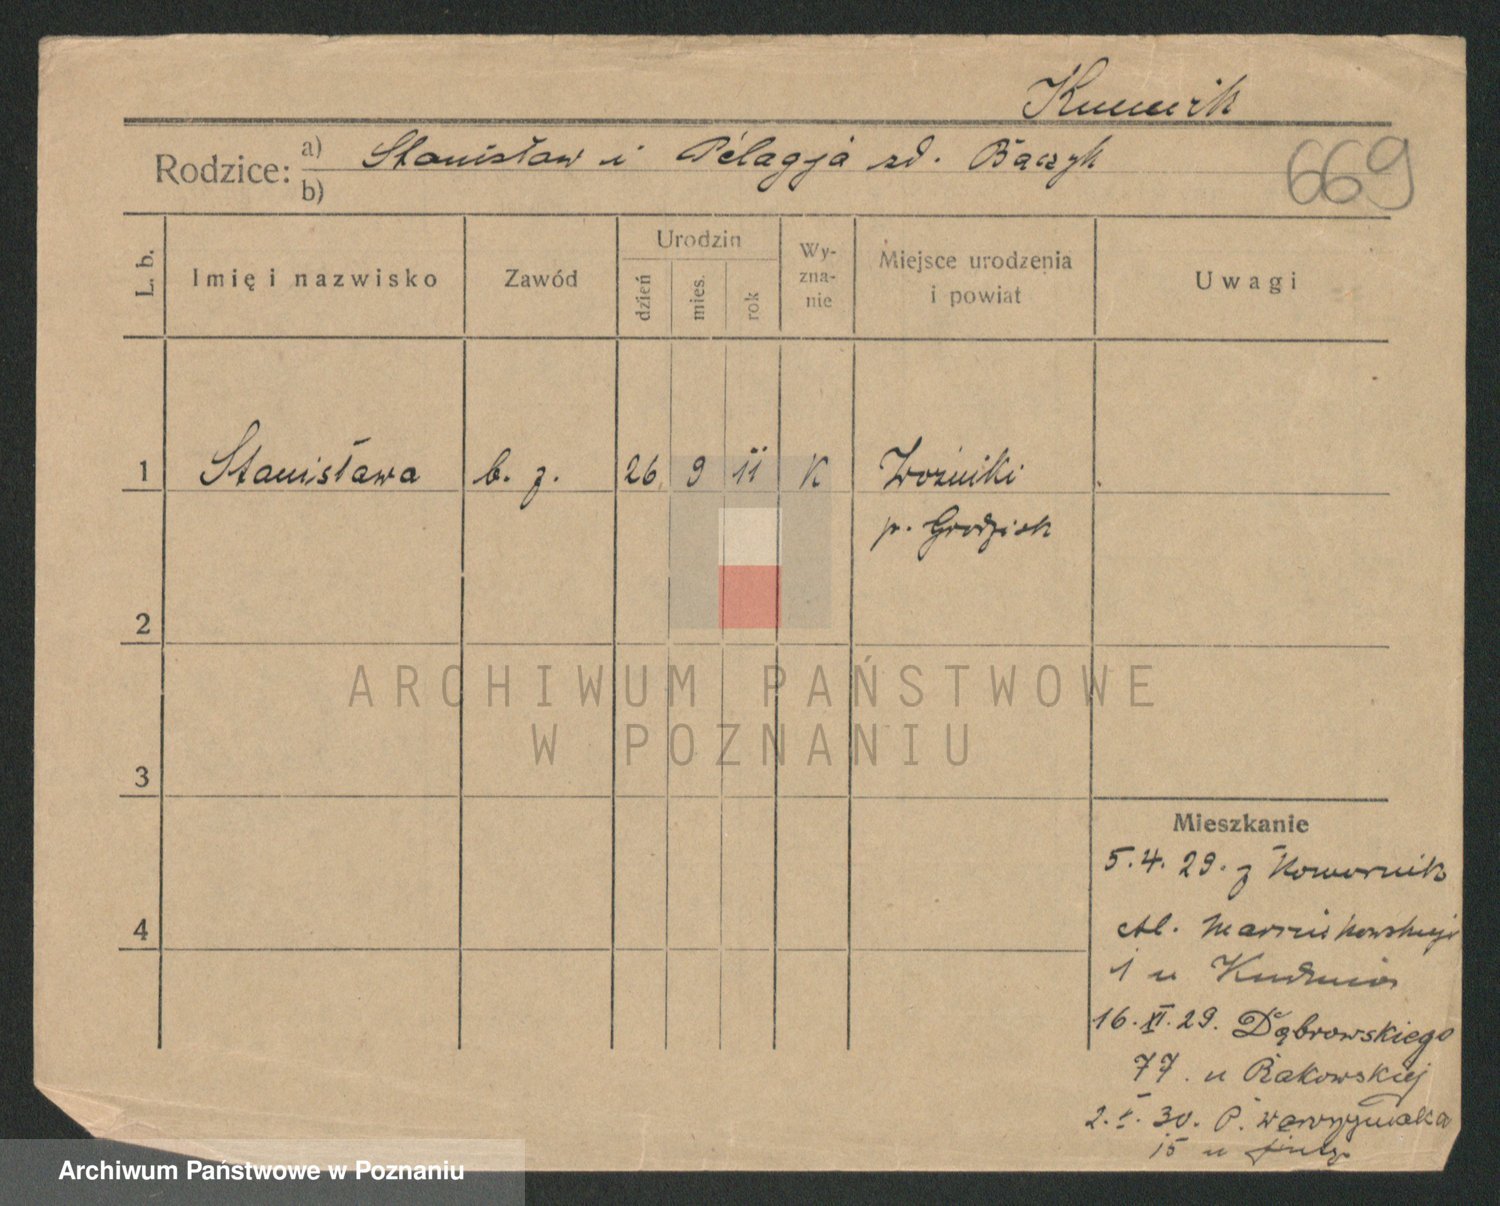 Rodzice: a) Stanisław i Pelagja zd. Bączyk
b)
669
L. b.
Imię i nazwisko
Zawód
Urodzin
dzień
mies.
rok
Wy-
zna-
nie
Miejsce urodzenia
i powiat
Uwagi
1 Stanisława b. z. 26 9 11 K Woźniki
p. Grodzisk
2
3
4
Mieszkanie
5.4.29. z
Al. Marcinkowskiego
1 u
16.XI.29. Dąbrowskiego
77 u Rakowskiej
2.I.30. P. Wawrzyniaka
15 u
ARCHIWUM PAŃSTWOWE
W POZNANIU
Archiwum Państwowe w Poznaniu